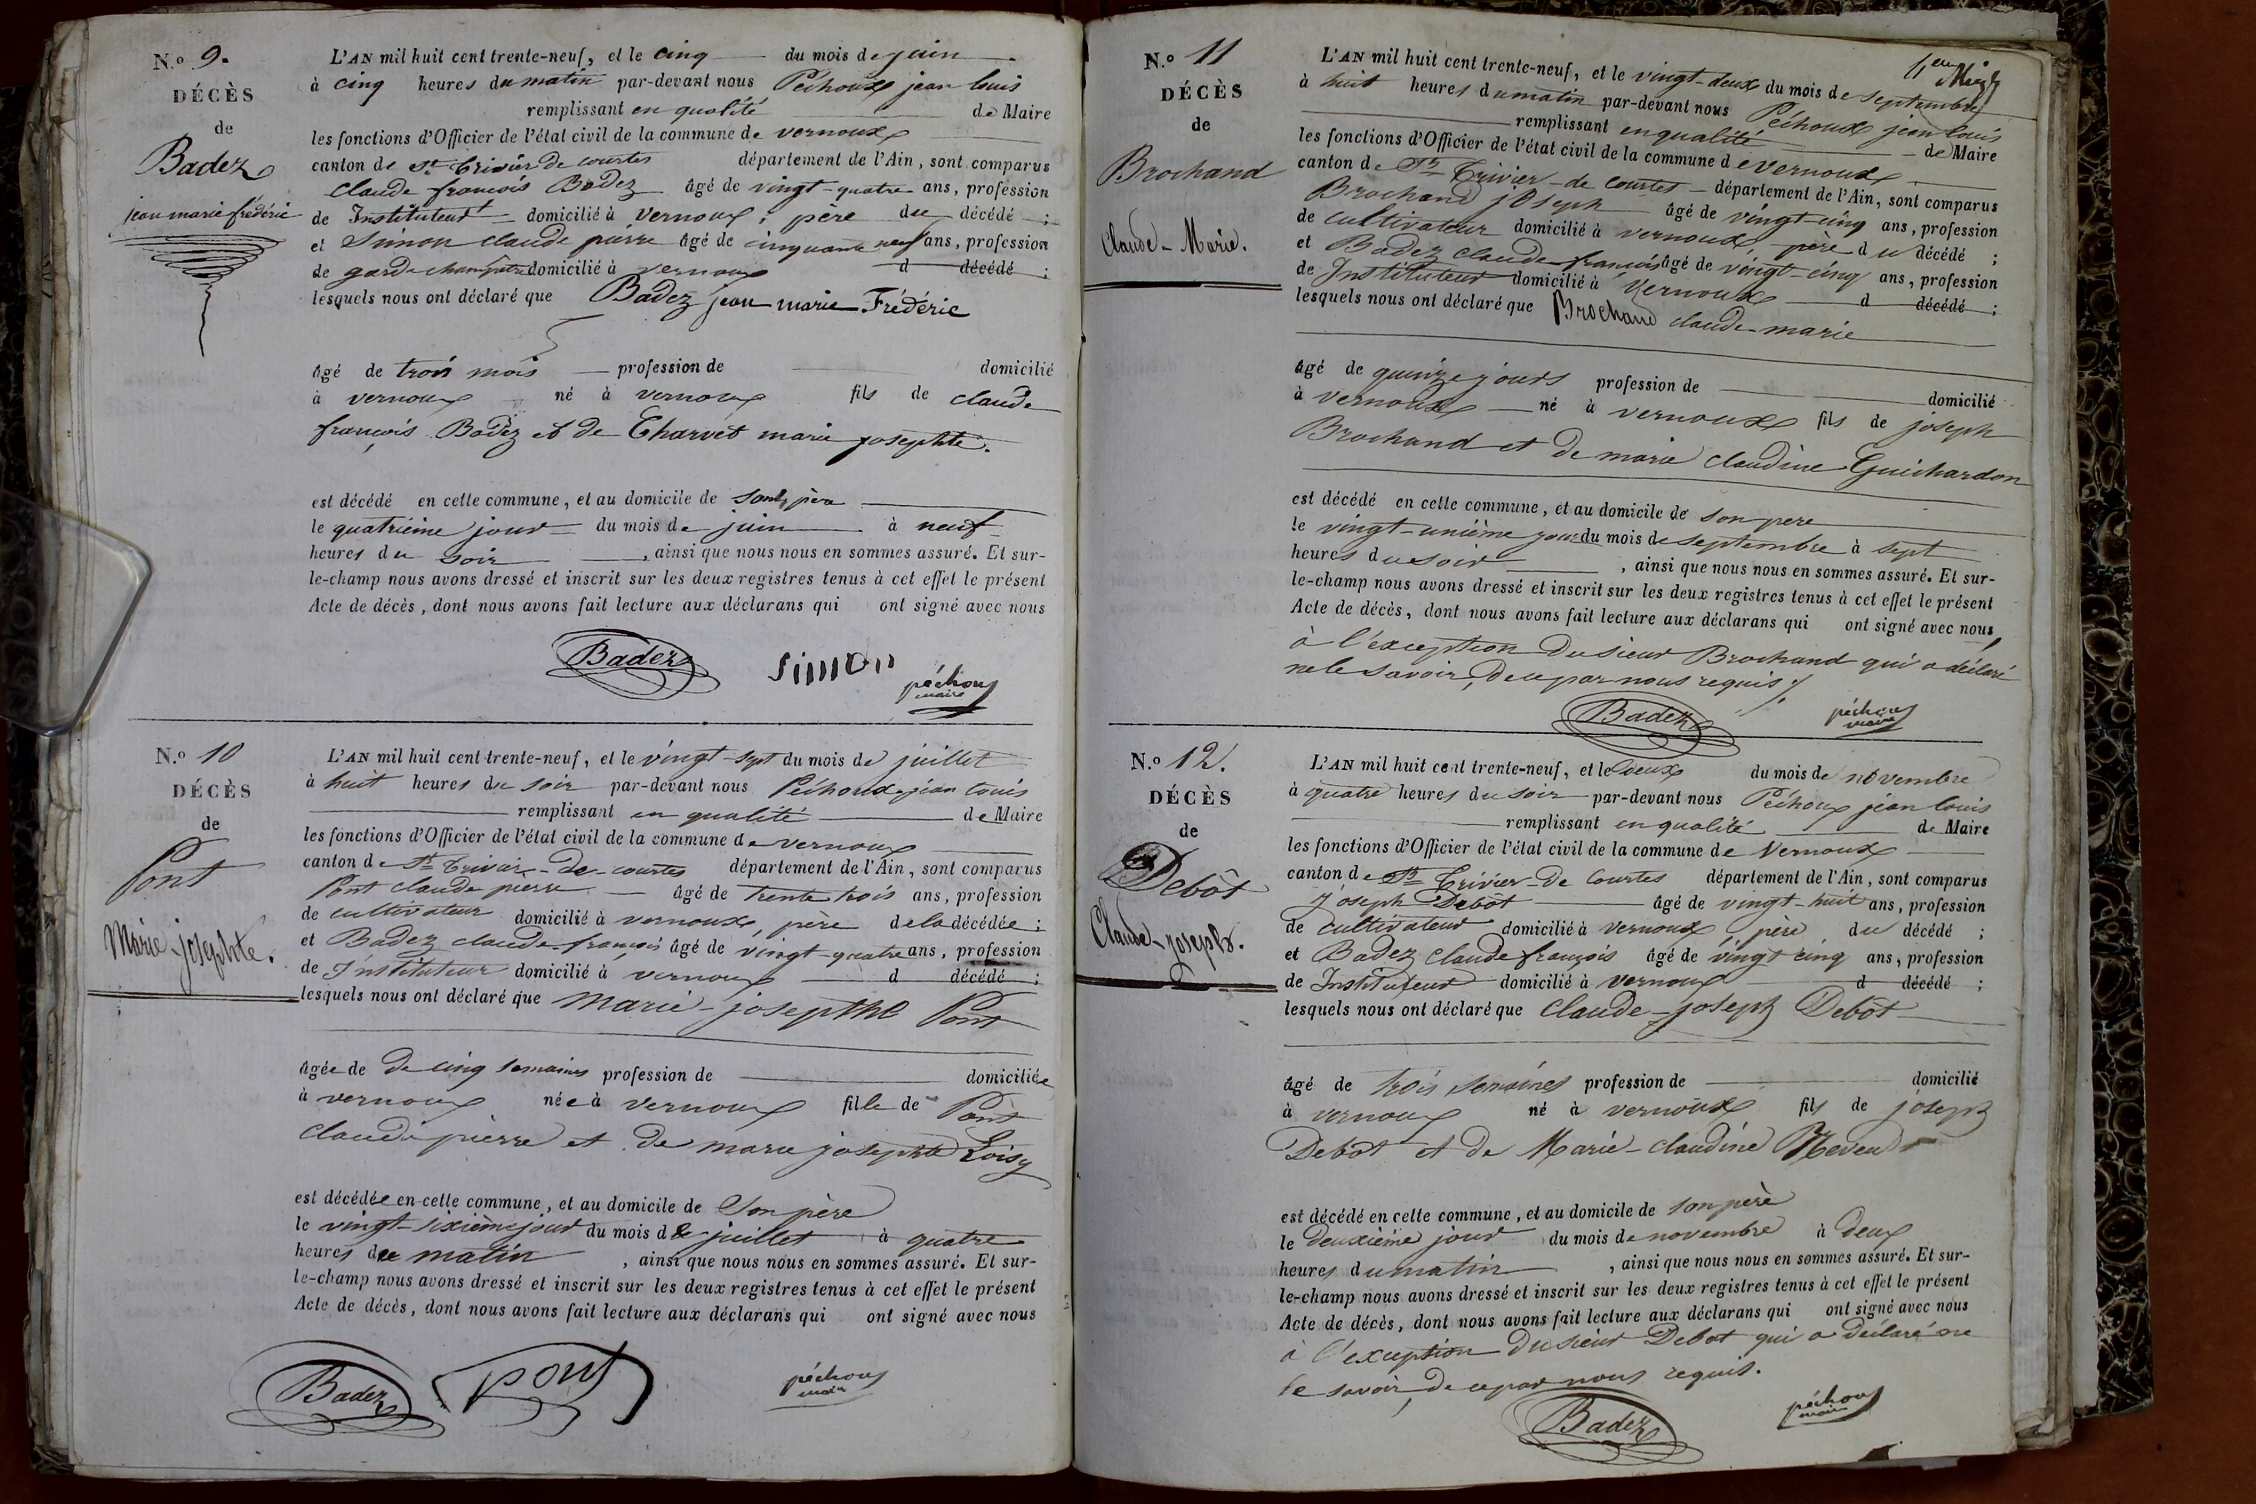 N.º 9.
DÉCÈS
de
Badez
jean marie frédéric
L'AN mil huit cent trente-neuf, et le cinq du mois de juin
à cinq heures du matin par-devant nous Péchoux jean louis
remplissant en qualité de Maire
les fonctions d'Officier de l'état civil de la commune de vernoux
canton de St Trivier de courtes département de l'Ain, sont comparus
claude françois Badez âgé de vingt-quatre ans, profession
de Instituteur domicilié à vernoux, père du décédé ;
et Simon claude pierre âgé de cinquante neuf ans, profession
de garde champêtre domicilié à vernoux d décédé ;
lesquels nous ont déclaré que Badez jean marie Frédéric
âgé de trois mois profession de domicilié
à vernoux né à vernoux fils de claude
françois Badez et de Charvet marie josephte.
est décédé en cette commune, et au domicile de son père
le quatrième jour du mois de juin à neuf
heures du soir, ainsi que nous nous en sommes assuré. Et sur-
le-champ nous avons dressé et inscrit sur les deux registres tenus à cet effet le présent
Acte de décès, dont nous avons fait lecture aux déclarans qui ont signé avec nous
Badez simon péchoux
maire
N.º 10
DÉCÈS
de
Pont
Marie-josephte.
L'AN mil huit cent trente-neuf, et le vingt-sept du mois de juillet
à huit heures du soir par-devant nous Péchoux jean louis
remplissant en qualité de Maire
les fonctions d'Officier de l'état civil de la commune de vernoux
canton de St Trivier-de-courtes département de l'Ain, sont comparus
Pont claude pierre âgé de trente trois ans, profession
de cultivateur domicilié à vernoux, père de la décédée ;
et Badez claude françois âgé de vingt-quatre ans, profession
de Instituteur domicilié à vernoux d décédé ;
lesquels nous ont déclaré que marie-josepthe Pont
âgée de de cinq semaines profession de domiciliée
à vernoux née à vernoux fille de Pont
claude pierre et de marie josephte Loisy
est décédée en cette commune, et au domicile de son père
le vingt-sixième jour du mois de juillet à quatre
heures du matin, ainsi que nous nous en sommes assuré. Et sur-
le-champ nous avons dressé et inscrit sur les deux registres tenus à cet effet le présent
Acte de décès, dont nous avons fait lecture aux déclarans qui ont signé avec nous
Badez pont péchoux
maire
N.º 11
DÉCÈS
de
Brochand
Claude-Marie.
L'AN mil huit cent trente-neuf, et le vingt-deux du mois de septembre
à huit heures du matin par-devant nous Péchoux jean louis
remplissant en qualité de Maire
les fonctions d'Officier de l'état civil de la commune de vernoux
canton de St Trivier-de courtes département de l'Ain, sont comparus
Brochand joseph âgé de vingt-cinq ans, profession
de cultivateur domicilié à vernoux, père du décédé ;
et Badez claude françois âgé de vingt-cinq ans, profession
de Instituteur domicilié à vernoux d décédé ;
lesquels nous ont déclaré que Brochand claude-marie
âgé de quinze jours profession de domicilié
à vernoux né à vernoux fils de joseph
Brochand et de marie claudine Guichardon
est décédé en cette commune, et au domicile de son pere
le vingt-unième jour du mois de septembre à sept
heures du soir, ainsi que nous nous en sommes assuré. Et sur-
le-champ nous avons dressé et inscrit sur les deux registres tenus à cet effet le présent
Acte de décès, dont nous avons fait lecture aux déclarans qui ont signé avec nous,
à l'exception du sieur Brochand qui a déclaré
ne le savoir, de ce par nous requis
Badez péchoux
maire
N.º 12.
DÉCÈS
de
Debôt
Claude-joseph.
L'AN mil huit cent trente-neuf, et le deux du mois de novembre
à quatre heures du soir par-devant nous Péchoux jean louis
remplissant en qualité de Maire
les fonctions d'Officier de l'état civil de la commune de Vernoux
canton de St Trivier-de courtes département de l'Ain, sont comparus
joseph Debôt âgé de vingt-huit ans, profession
de cultivateur domicilié à vernoux, père du décédé ;
et Badez claude françois âgé de vingt cinq ans, profession
de Instituteur domicilié à vernoux d décédé ;
lesquels nous ont déclaré que claude-joseph Debôt
âgé de trois semaines profession de domicilié
à vernoux né à vernoux fils de joseph
Debôt et de Marie-claudine
est décédé en cette commune, et au domicile de son père
le deuxième jour du mois de novembre à deux
heures du matin, ainsi que nous nous en sommes assuré. Et sur-
le-champ nous avons dressé et inscrit sur les deux registres tenus à cet effet le présent
Acte de décès, dont nous avons fait lecture aux déclarans qui ont signé avec nous
à l'exception du sieur Debot qui a déclaré ne
le savoir, de ce par nous requis.
Badez péchoux
maire